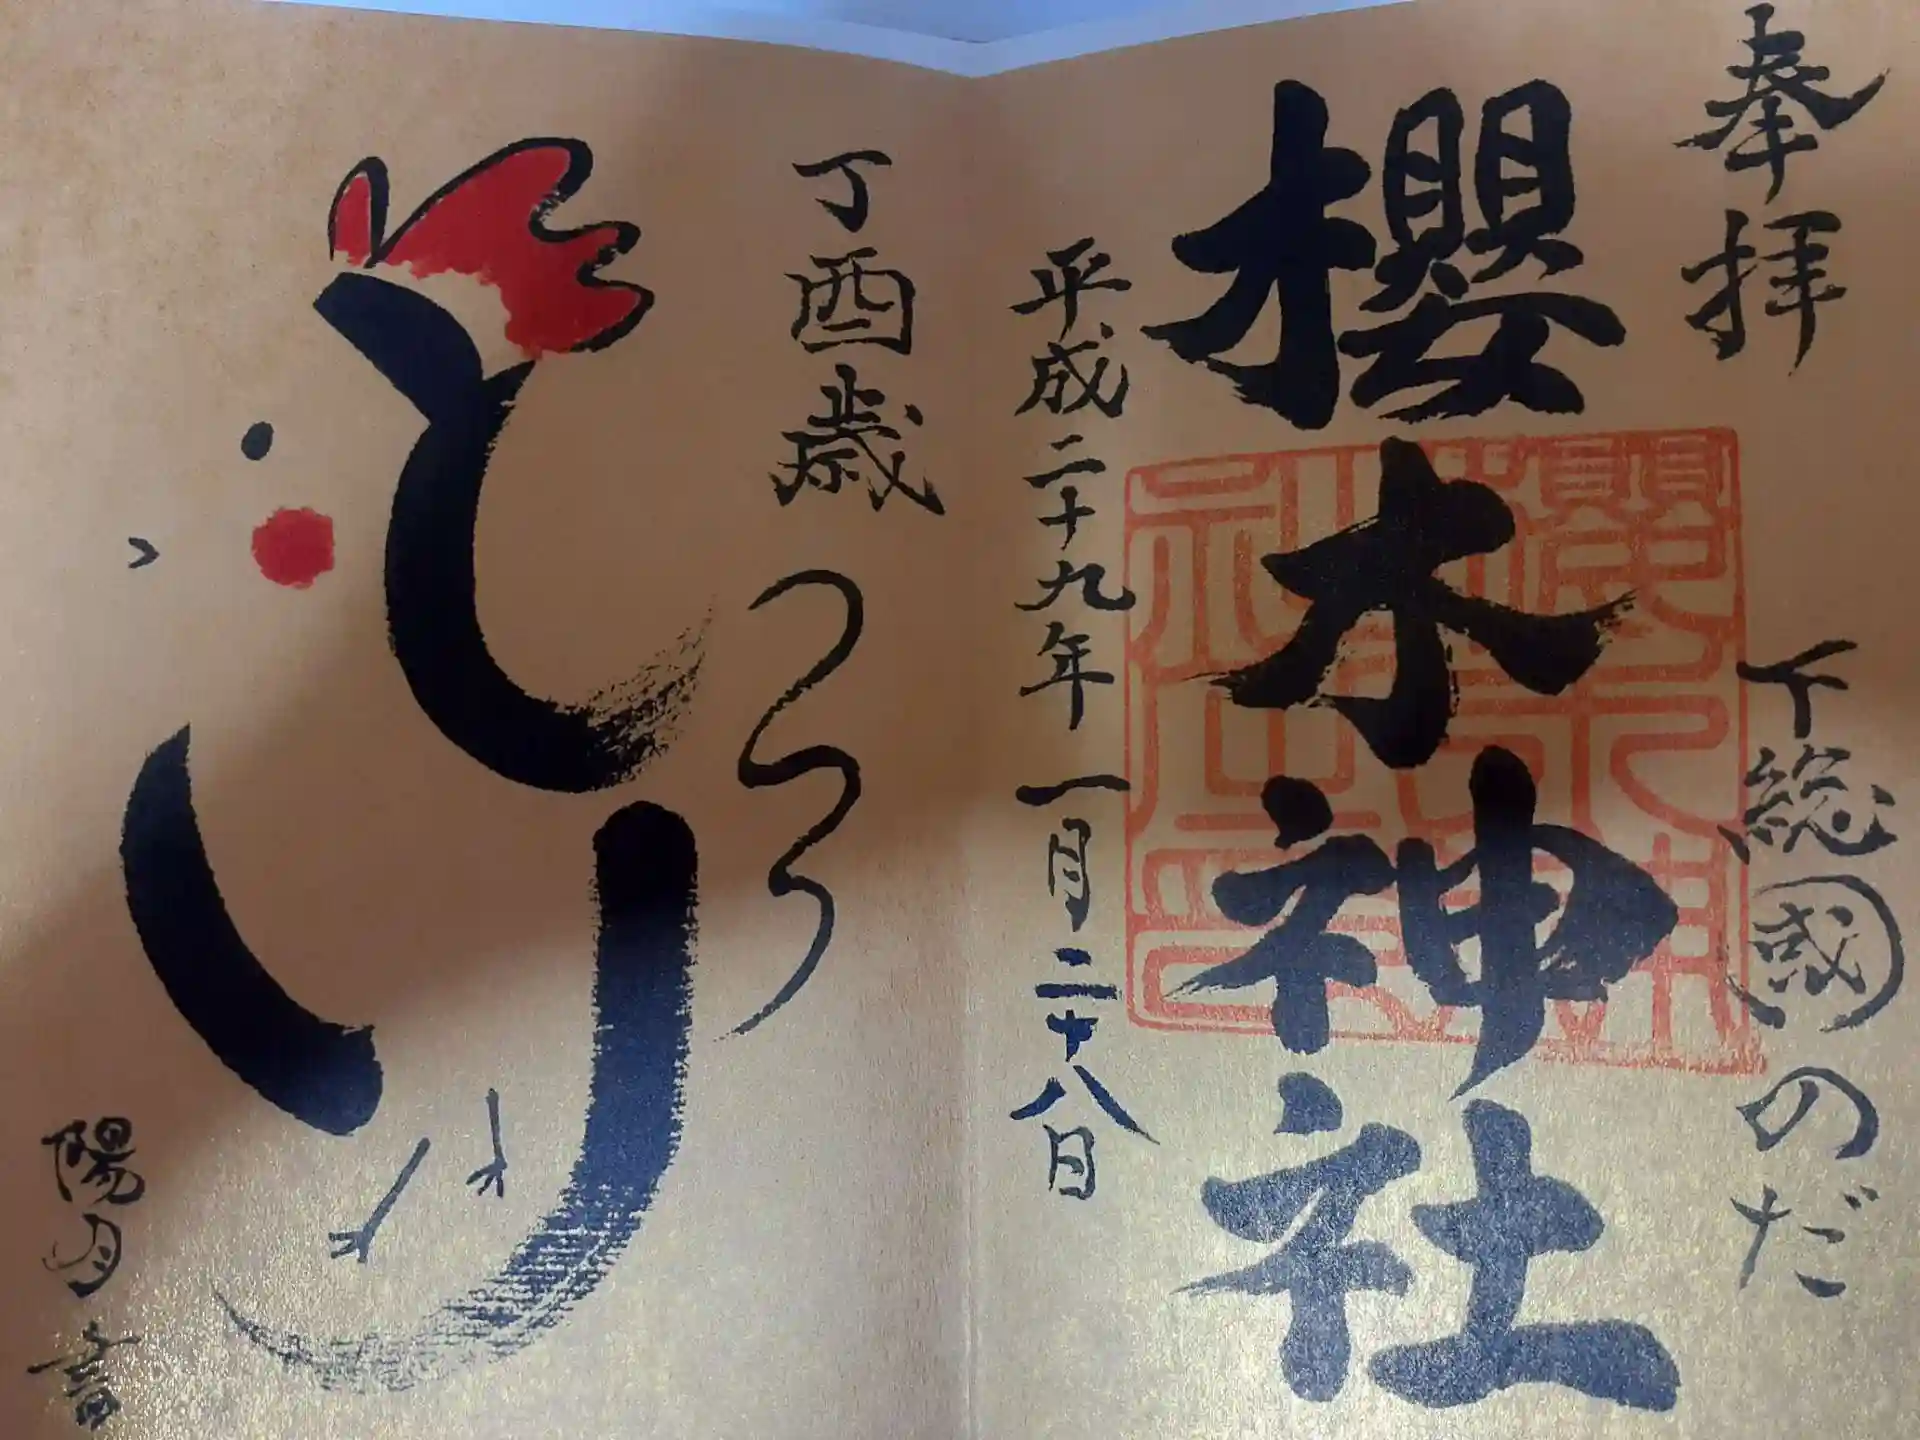 奉拝
下総國のだ
櫻木神社
平成二十九年一月二十八日
丁酉歳
とり
陽月